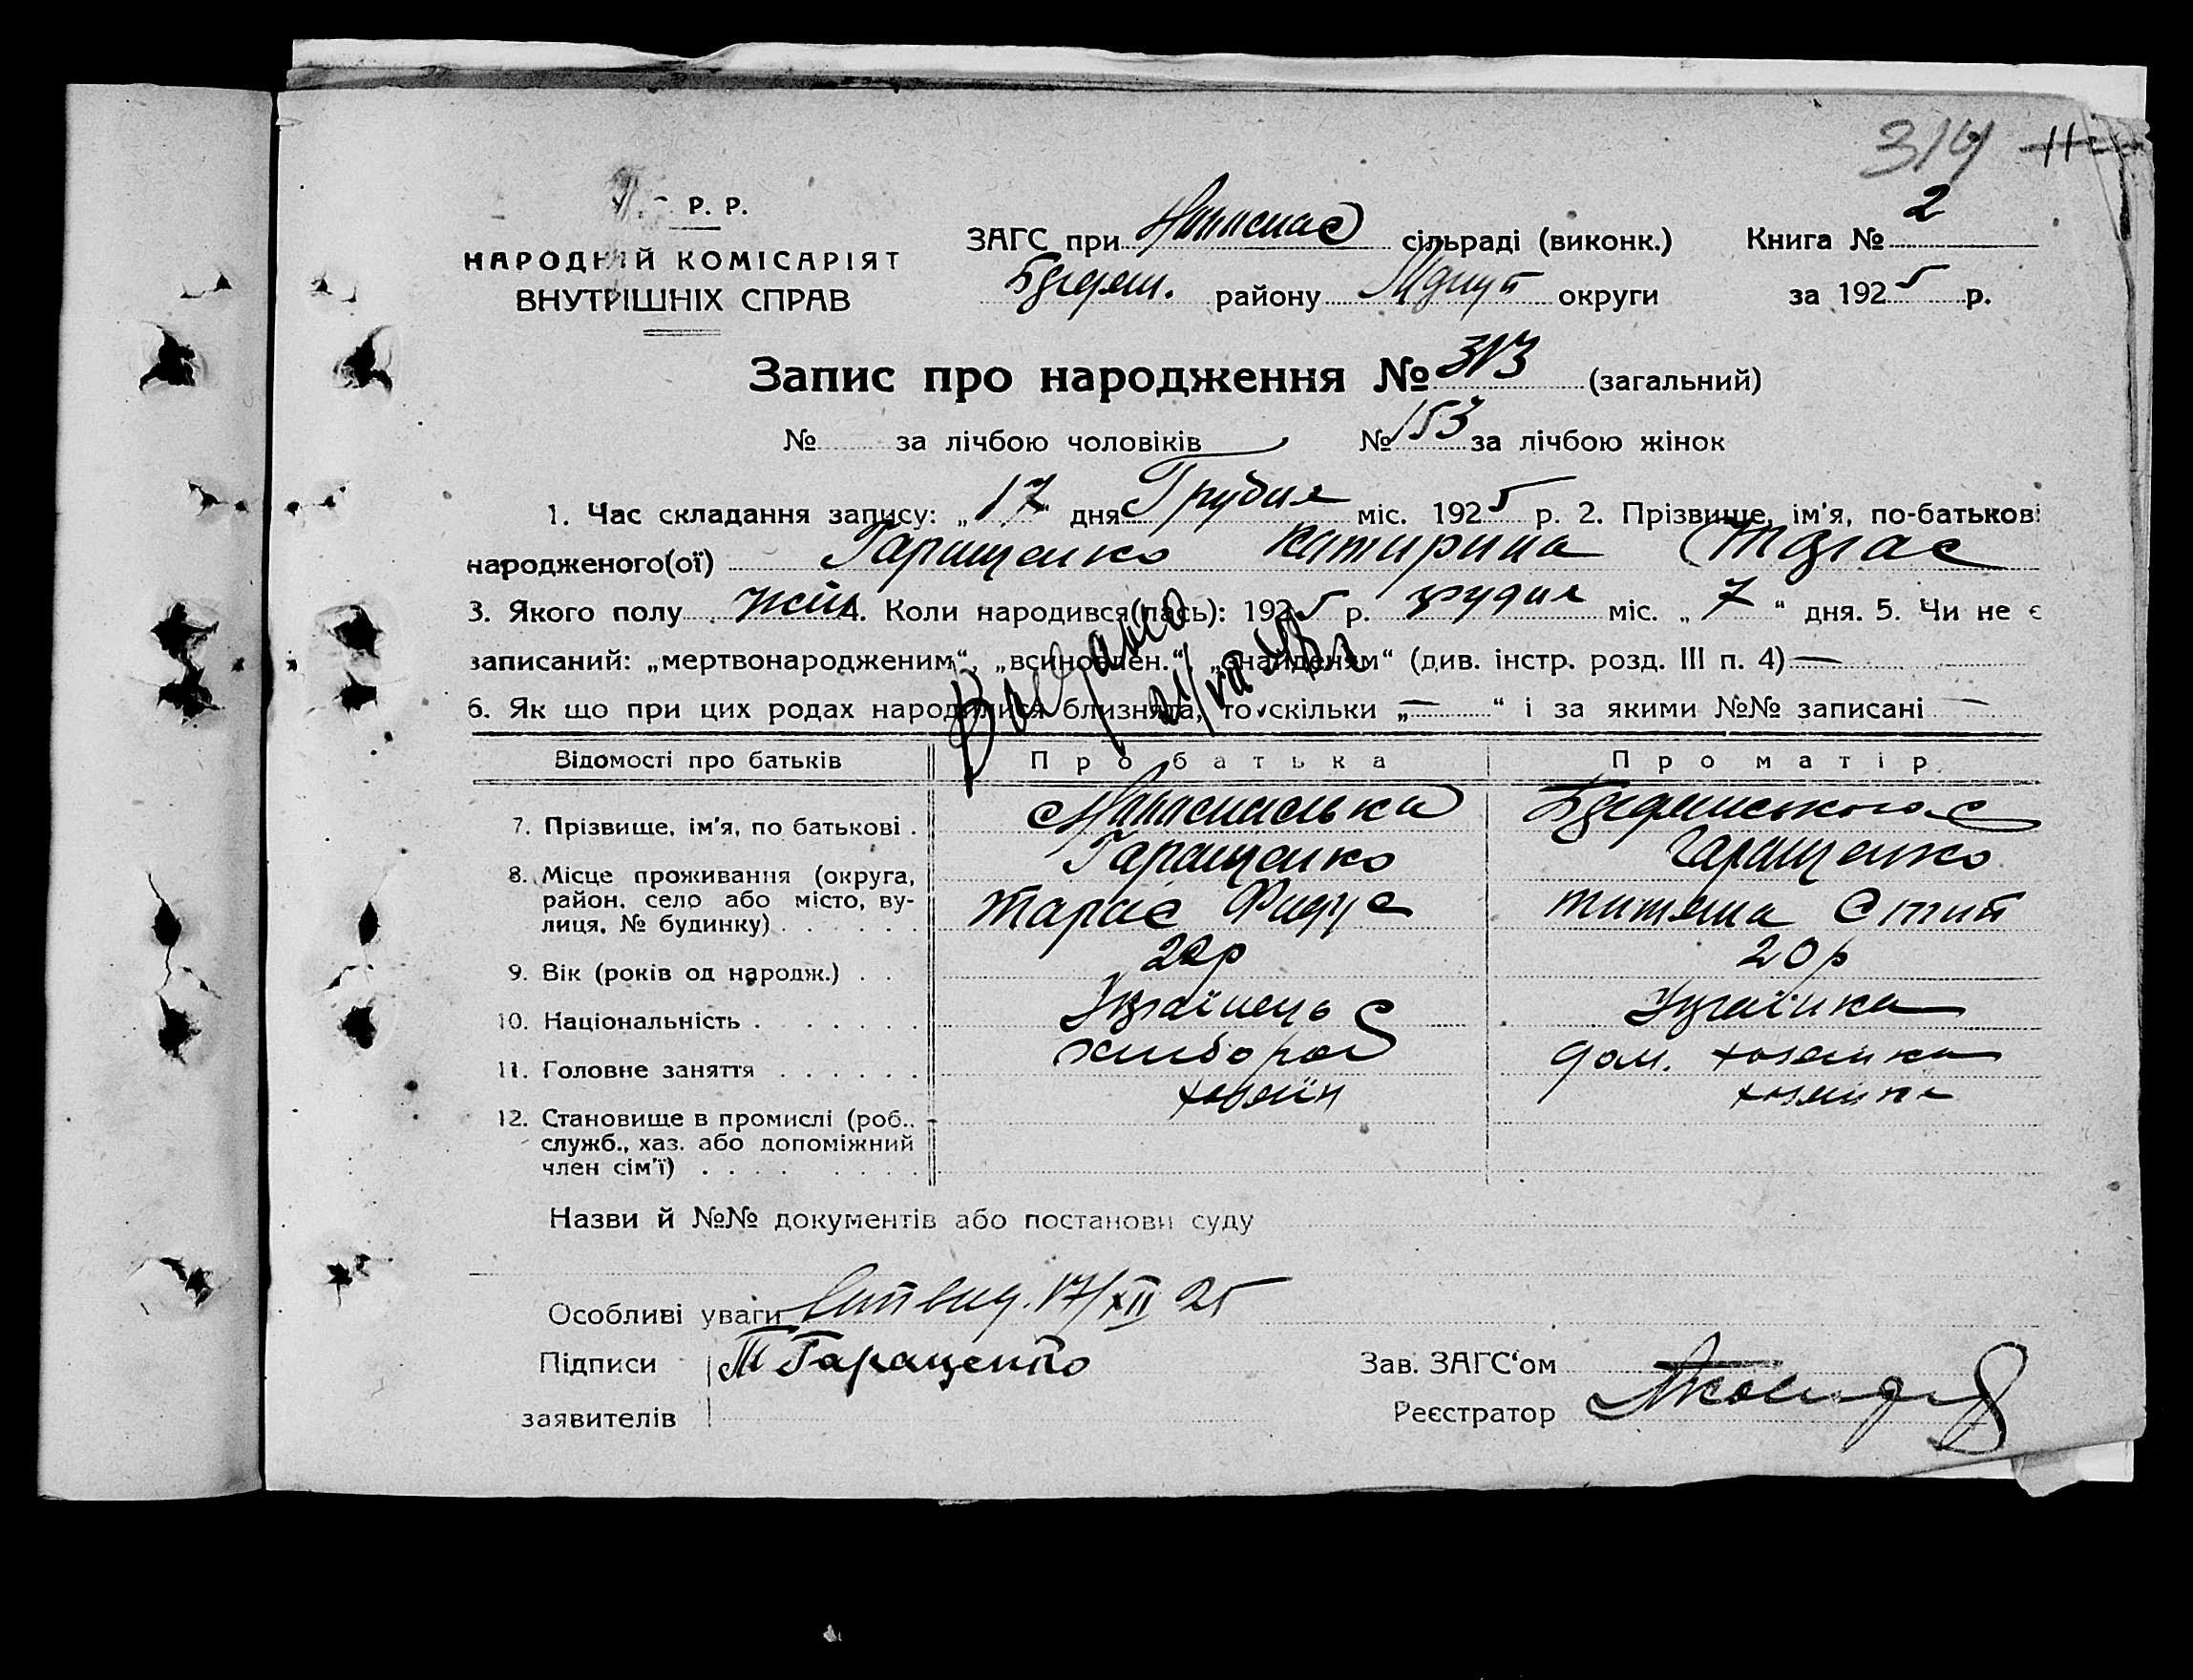 314
Р. Р.
НАРОДНІЙ КОМІСАРІЯТ
ВНУТРІШНІХ СПРАВ
ЗАГС при сільраді (виконк.) Книга № 2
району округи за 1925 р.
Запис про народження № 313 (загальний)
№ за лічбою чоловіків № 153 за лічбою жінок
1. Час складання запису: „17“ дня Грудня міс. 1925 р. 2. Прізвище, ім'я, по-батькові
народженого(ої) Гаращенко Катирина Тарас
3. Якого полу жін 4. Коли народився(лась): 1925 р. грудня міс. „7“ дня. 5. Чи не є
записаний: „мертвонародженим“, „всиновлен.“, „знайденям“ (див. інстр. розд. III п. 4) —
6. Як що при цих родах народилися близнята, то скільки „—“ і за якими №№ записані —
Видано
Відомості про батьків Про батька Про матір
7. Прізвище, ім'я, по батькові .
Гаращенко Гаращенко
8. Місце проживання (округа,
район, село або місто, ву-
лиця, № будинку) . . . . . .
Тарас
9. Вік (років од народж.) . . 22р 20р
10. Національність . . . . . . . Українець Українка
11. Головне заняття . . . . . . хлібороб дом. хозяйка
хозяїн хозяйка
12. Становище в промислі (роб.,
служб., хаз. або допоміжний
член сім'ї) . . . . . . . . .
Назви й №№ документів або постанови суду
Особливі уваги 17/XII 25
Підписи Т Гаращенко Зав. ЗАГС‘ом
заявителів Реєстратор